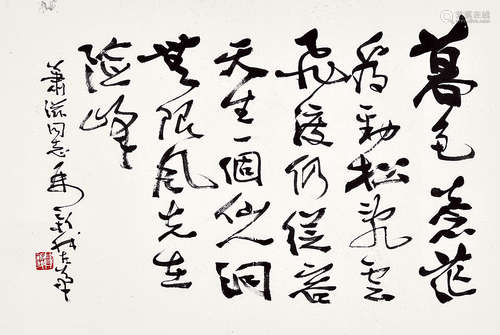 暮色苍茫
看劲松乱云
飞渡仍從容
天生一個仙人洞
無限风光在
险峰
萧滋同志